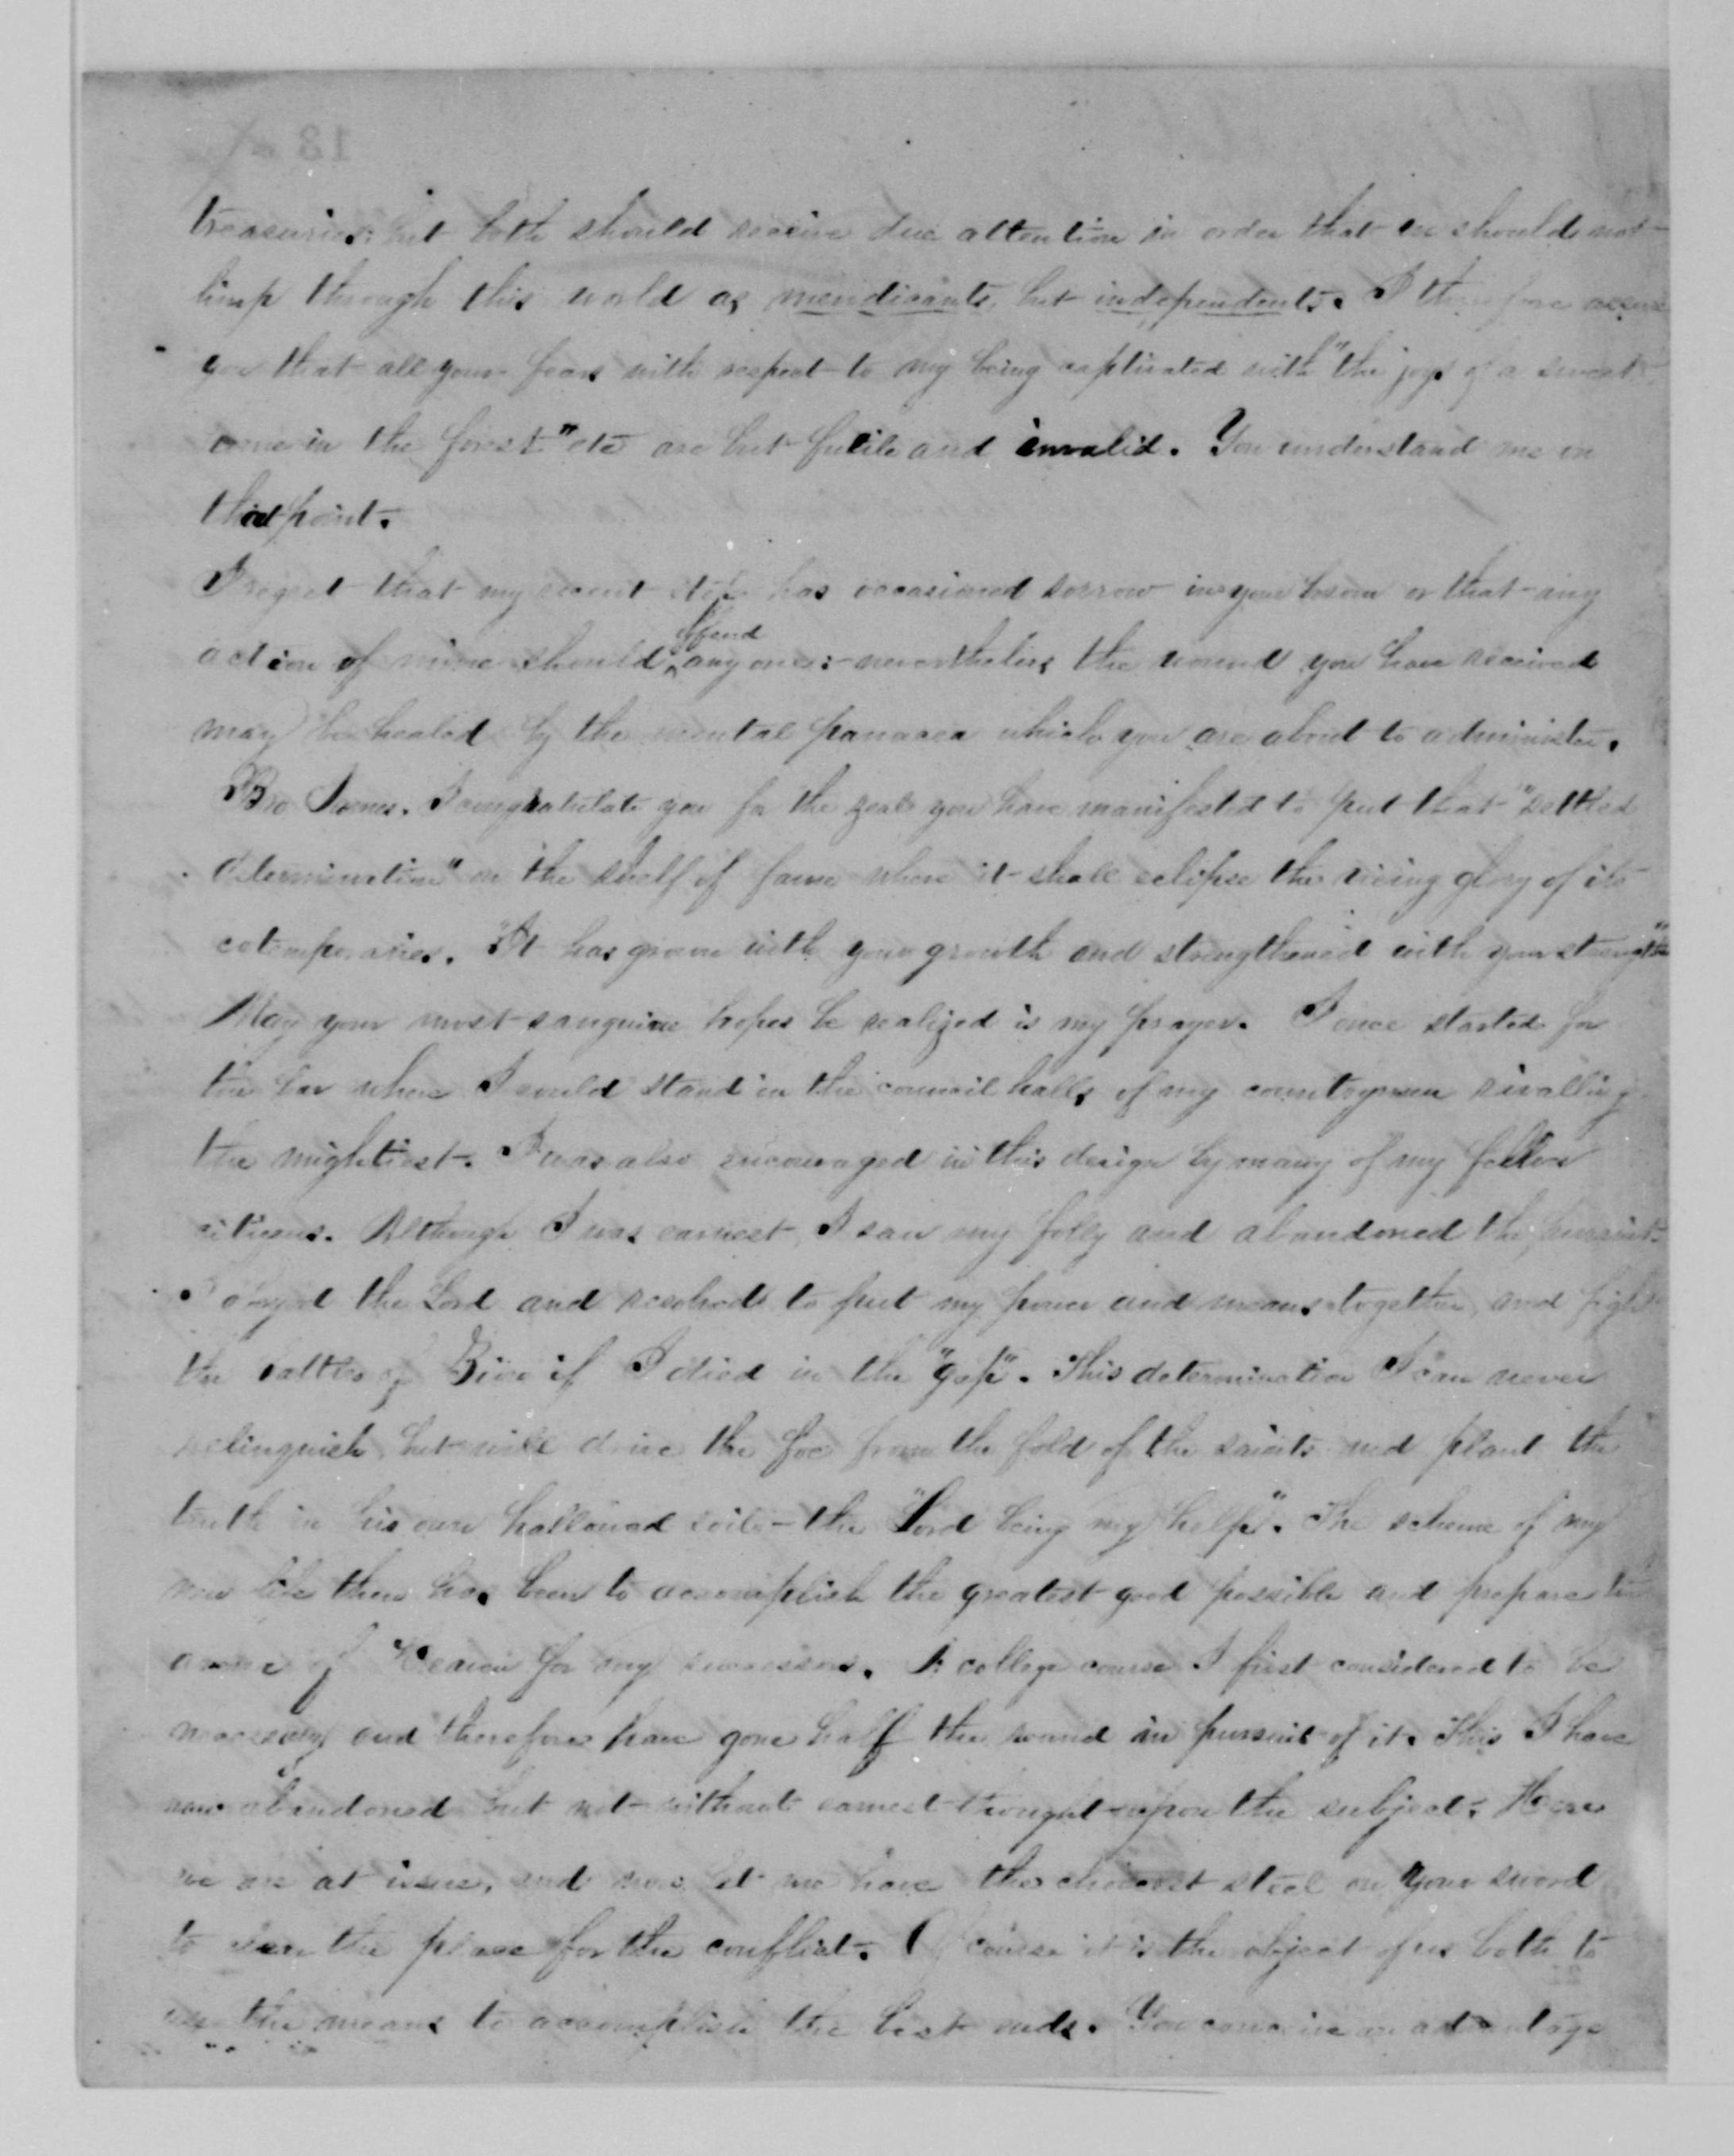 treasuries; but both should receive due attention in order that we should not
limp through this world as mendicants, but independents. I therefore assure
you that all your fears with respect to my being captivated with "the joys of a sweet
one in the forest" etc are but futile and invalid. You understand me on
that point.
I regret that my recent step has occasioned sorrow in your bosom or that any
action of mine should offend any one:- nevertheless the wound you have received
may be healed by the mental panacea which you are about to administer.
Bro James. I congratulate you for the zeal you have manifested to put that "settled
determination" on the shelf of fame where it shall eclipse the rising glory of its
cotemporaries. "It has grown with your growth and strengthened with your strength"
May your most sanguine hopes be realized is my prayer. I once started for
the bar where I could stand in the council halls of my countrymen rivalling
the mightiest. I was also encouraged in this design by many of my fellow
citizens. Although I was earnest, I saw my folly and abandoned the pursuit.
I obeyed the Lord and resolved to put my power and means together, and fight
the battles of Zion if I died in the "gap". This determination I can never
relinquish, but will drive the foe from the fold of the saints and plant the
truth in his own hallowed soil - the "Lord being my help". The scheme of my
new life then has been to accomplish the greatest good possible and prepare the
of for my successors. A college course I first considered to be
necessary and therefore have gone half the round in pursuit of it. This I have
now abandoned but not without earnest thought upon the subject. Here
we are at issue, and now let me have the choicest steel on your sword
to clear the place for the conflict. Of course it is the object of us both to
use the means to accomplish the best ends. You conceive an advantage